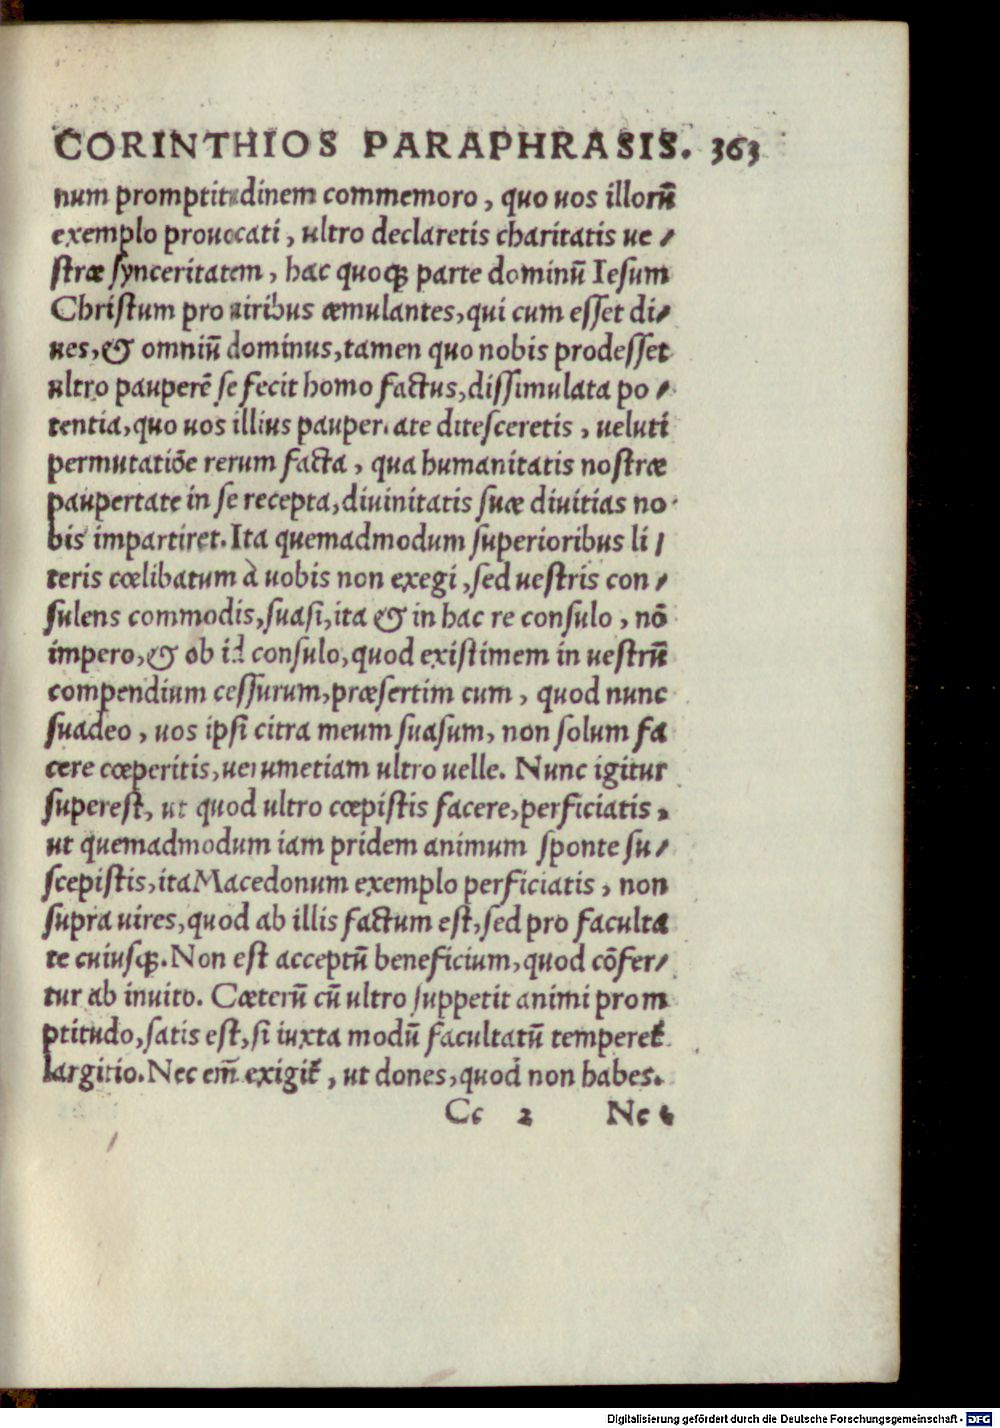 CORINTHIOS PARAPHRASIS. 363
num promptitudinem commemoro, quo uos illorū
exemplo prouocati, ultro declaretis charitatis ue/
stræ synceritatem, hac quoqꝫ parte dominū Iesum
Christum pro uiribus æmulantes, qui cum esset di/
ues, & omniū dominus, tamen quo nobis prodesset
ultro pauperē se fecit homo factus, dissimulata po/
tentia, quo uos illius paupertate ditesceretis, ueluti
permutatiōe rerum facta, qua humanitatis nostræ
paupertate in se recepta, diuinitatis suæ diuitias no
bis impartiret. Ita quemadmodum superioribus li/
teris cœlibatum à uobis non exegi, sed uestris con/
sulens commodis, suasi, ita & in hac re consulo, nō
impero, & ob id consulo, quod existimem in uestrū
compendium cessurum, præsertim cum, quod nunc
suadeo, uos ipsi citra meum suasum, non solum fa
cere cœperitis, uerumetiam ultro uelle. Nunc igitur
superest, ut quod ultro cœpistis facere, perficiatis,
ut quemadmodum iam pridem animum sponte su/
scepistis, ita Macedonum exemplo perficiatis, non
supra uires, quod ab illis factum est, sed pro faculta
te cuiusqꝫ. Non est acceptū beneficium, quod cōfer/
tur ab inuito. Cæterū cū ultro suppetit animi prom
ptitudo, satis est, si iuxta modū facultatū tempereť
largitio. Nec em̄ exigiť, ut dones, quod non habes.
Cc 2 Ne
Digitalisierung gefördert durch die Deutsche Forschungsgemeinschaft - DFG